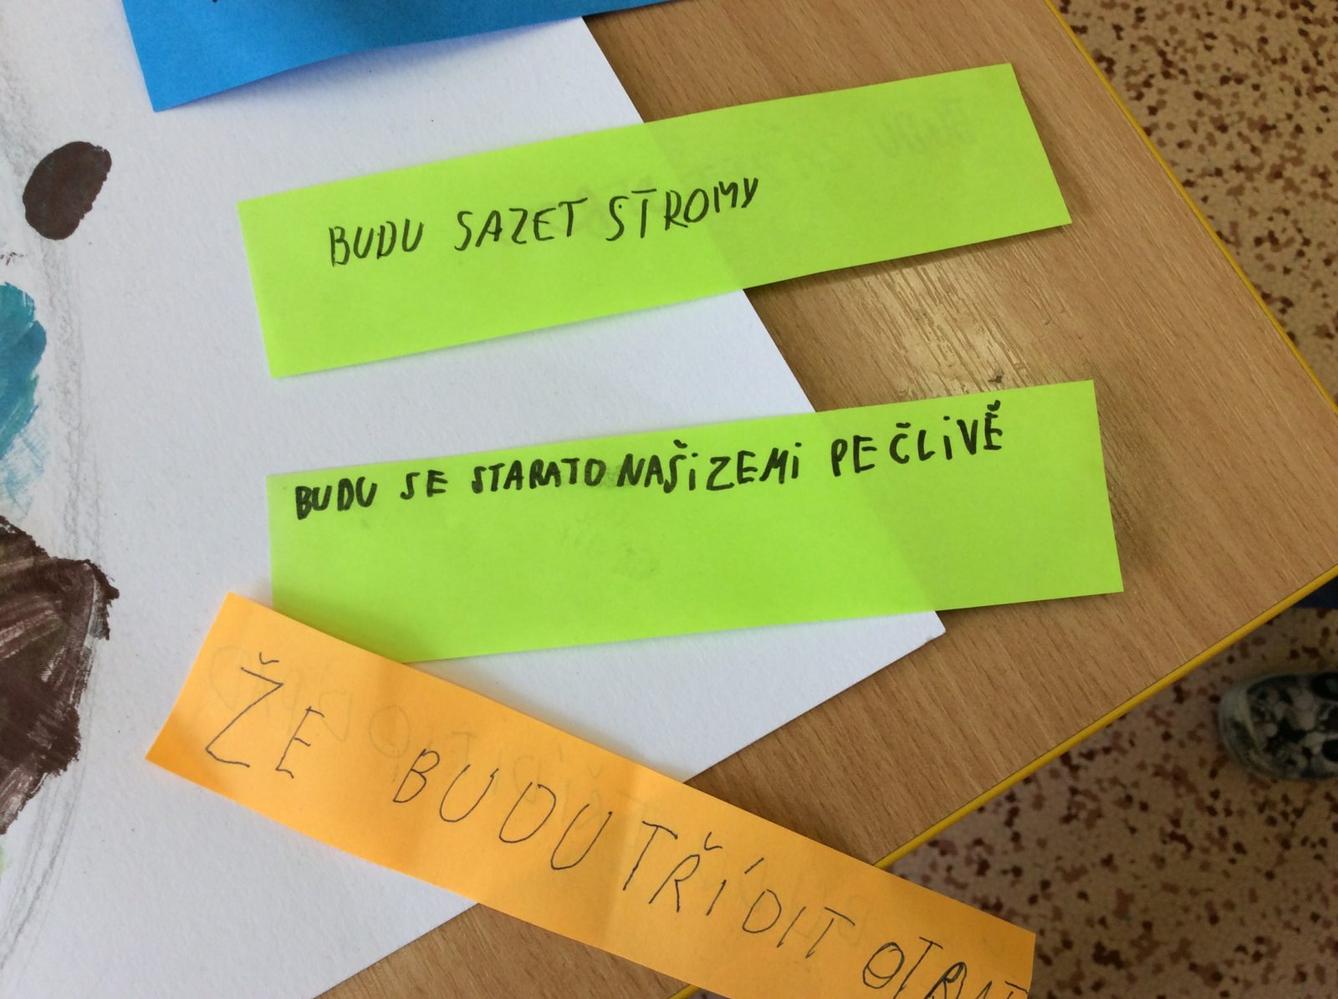 BUDU SAZET STROMY
BUDU SE STARATO NAŠi ZEMi PEČLiVĚ
ŽE BUDU TŘÍDIT